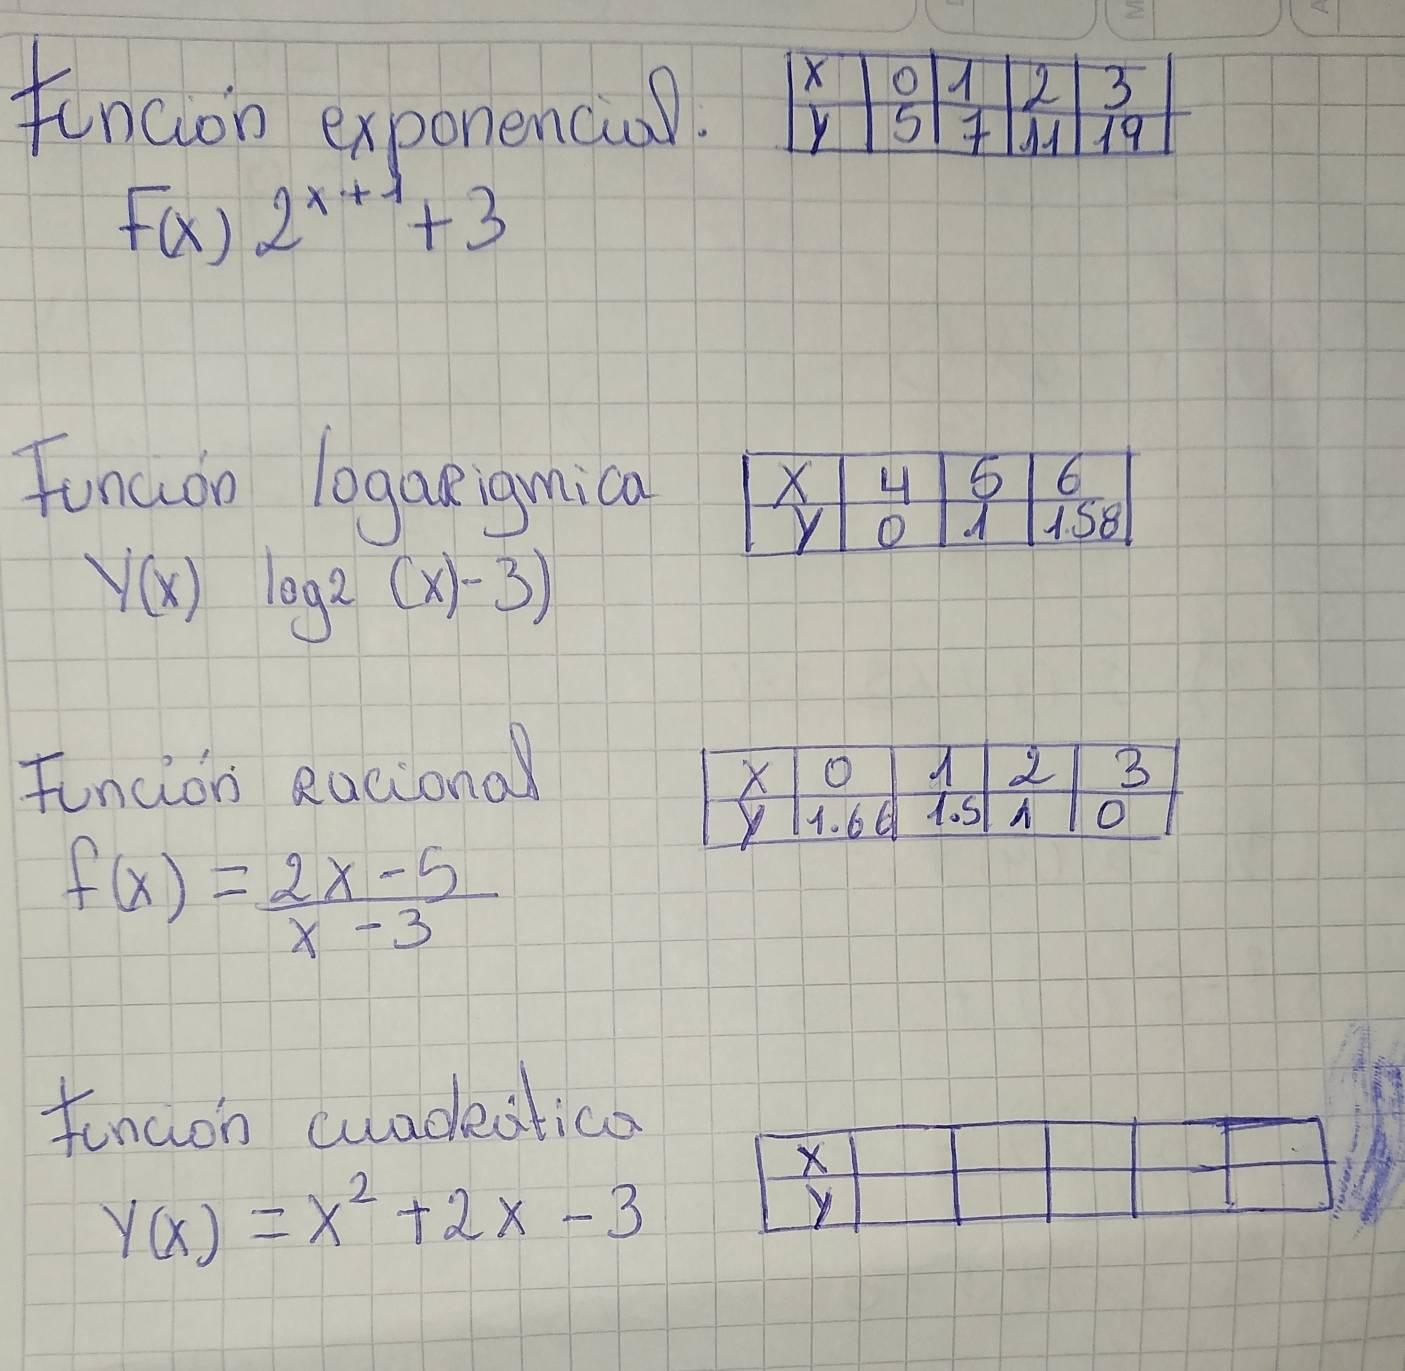 Función exponencial:
x 0 1 2 3
y 5 7 11 19
F(x) 2^x+1 + 3
Función logaRigmica
x 4 5 6
y 0 1 1.58
Y(x) log2 (x)-3)
Función Racional
x 0 1 2 3
y 1.66 1.5 1 0
f(x) = 2x - 5
x - 3
Función cuadRática
x
y
Y(x) = x² + 2x - 3